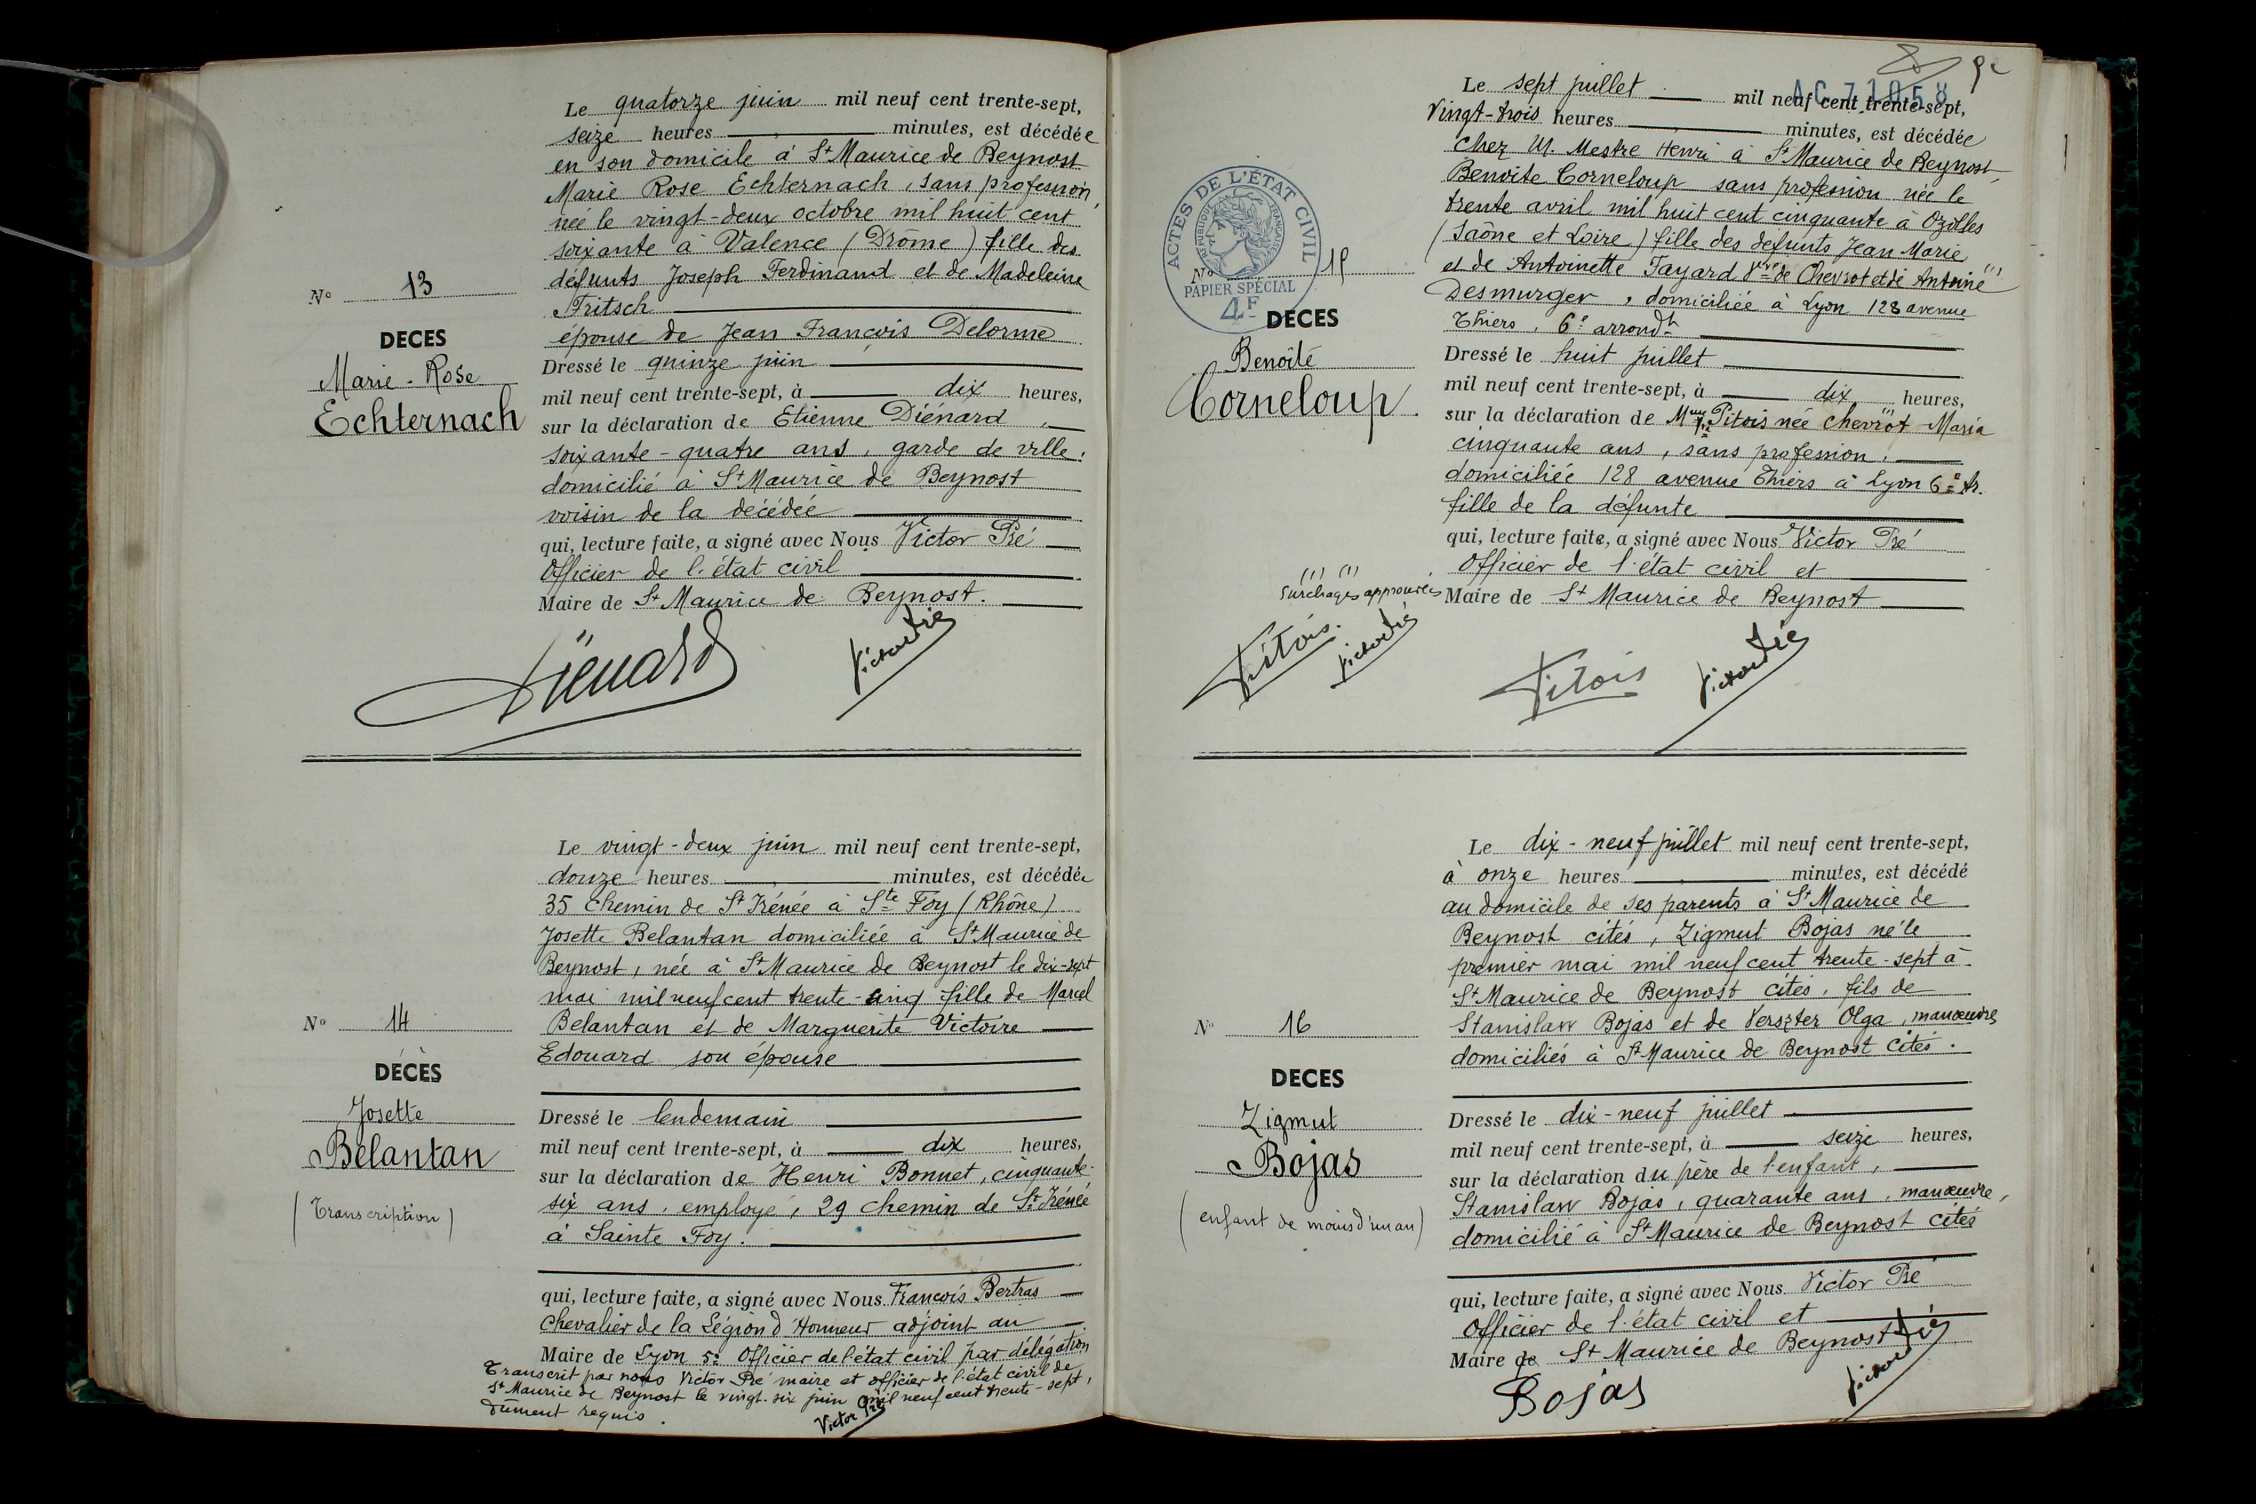 Le quatorze juin mil neuf cent trente-sept,
seize heures minutes, est décédée
en son domicile à St Maurice de Beynost
Marie Rose Echternach, sans profession,
née le vingt-deux octobre mil huit cent
soixante à Valence (Drôme) fille des
défunts Joseph Ferdinand et de Madeleine
Fritsch
épouse de Jean François Delorme
N° 13
DECES
Marie-Rose
Echternach
Dressé le quinze juin
mil neuf cent trente-sept, à dix heures,
sur la déclaration de Etienne Diénard,
soixante-quatre ans, garde de ville,
domicilié à St Maurice de Beynost
voisin de la décédée
qui, lecture faite, a signé avec Nous Victor Pré
Officier de l'état civil
Maire de St Maurice de Beynost.
Diénard Victor Pré
Le vingt-deux juin mil neuf cent trente-sept,
douze heures minutes, est décédée
35 Chemin de St Irénée à Ste Foy (Rhône)
Josette Belantan domiciliée à St Maurice de
Beynost, née à St Maurice de Beynost le dix-sept
mai mil neuf cent trente-cinq fille de Marcel
Belantan et de Marguerite Victoire
Edouard son épouse
N° 14
DÉCÈS
Josette
Belantan
(Transcription)
Dressé le lendemain
mil neuf cent trente-sept, à dix heures,
sur la déclaration de Henri Bonnet, cinquante-
six ans, employé, 29 chemin de St Irénée
à Sainte Foy.
qui, lecture faite, a signé avec Nous François Bertras
Chevalier de la Légion d'Honneur adjoint au
Maire de Lyon 5e Officier de l'état civil par délégation
Transcrit par nous Victor Pré maire et officier de l'état civil de
St Maurice de Beynost le vingt-six juin mil neuf cent trente-sept,
dûment requis.
Victor Pré
AC 71058
Le sept juillet mil neuf cent trente-sept,
Vingt-trois heures minutes, est décédée
chez M. Mestre Henri à St Maurice de Beynost,
Benoite Corneloup sans profession née le
trente avril mil huit cent cinquante à Ozolles
(Saône et Loire) fille des defunts Jean Marie
et de Antoinette Fayard Vve de Chevrot et de Antoine (1)
Desmurger, domiciliée à Lyon 128 avenue
Thiers, 6e arrondt
ACTES DE L'ÉTAT CIVIL
RÉPUBLIQUE FRANÇAISE
PAPIER SPÉCIAL
4F
N° 15
DECES
Benoîte
Corneloup
Dressé le huit juillet
mil neuf cent trente-sept, à dix heures,
sur la déclaration de Mme Vve Pitois née Chevrot (1) Maria
cinquante ans, sans profession,
domiciliée 128 avenue Thiers à Lyon 6e Ar.
fille de la défunte
qui, lecture faite, a signé avec Nous Victor Pré
Officier de l'état civil et
Maire de St Maurice de Beynost
(1) (1)
Surchages approuvées
Pitois. Victor Pré
Pitois Victor Pré
Le dix-neuf juillet mil neuf cent trente-sept,
à onze heures minutes, est décédé
au domicile de ses parents à St Maurice de
Beynost cités, Zigmut Bojas né le
premier mai mil neuf cent trente-sept à
St Maurice de Beynost cités, fils de
Stanislaw Bojas et de Verszter Olga, manœuvres
domiciliés à St Maurice de Beynost Cités.
N° 16
DECES
Zigmut
Bojas
(enfant de moins d'un an)
Dressé le dix-neuf juillet
mil neuf cent trente-sept, à seize heures,
sur la déclaration du père de l'enfant,
Stanislaw Bojas, quarante ans, manœuvre,
domicilié à St Maurice de Beynost cités
qui, lecture faite, a signé avec Nous Victor Pré
Officier de l'état civil et
Maire de St Maurice de Beynost
Bojas Victor Pré